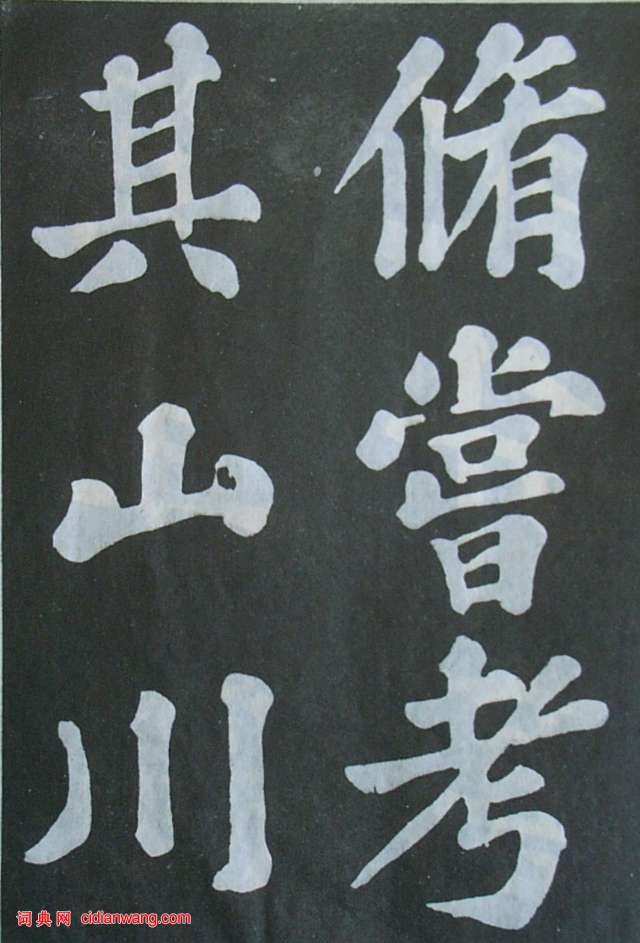 脩甞考
其山川
词典网 cidianwang.com